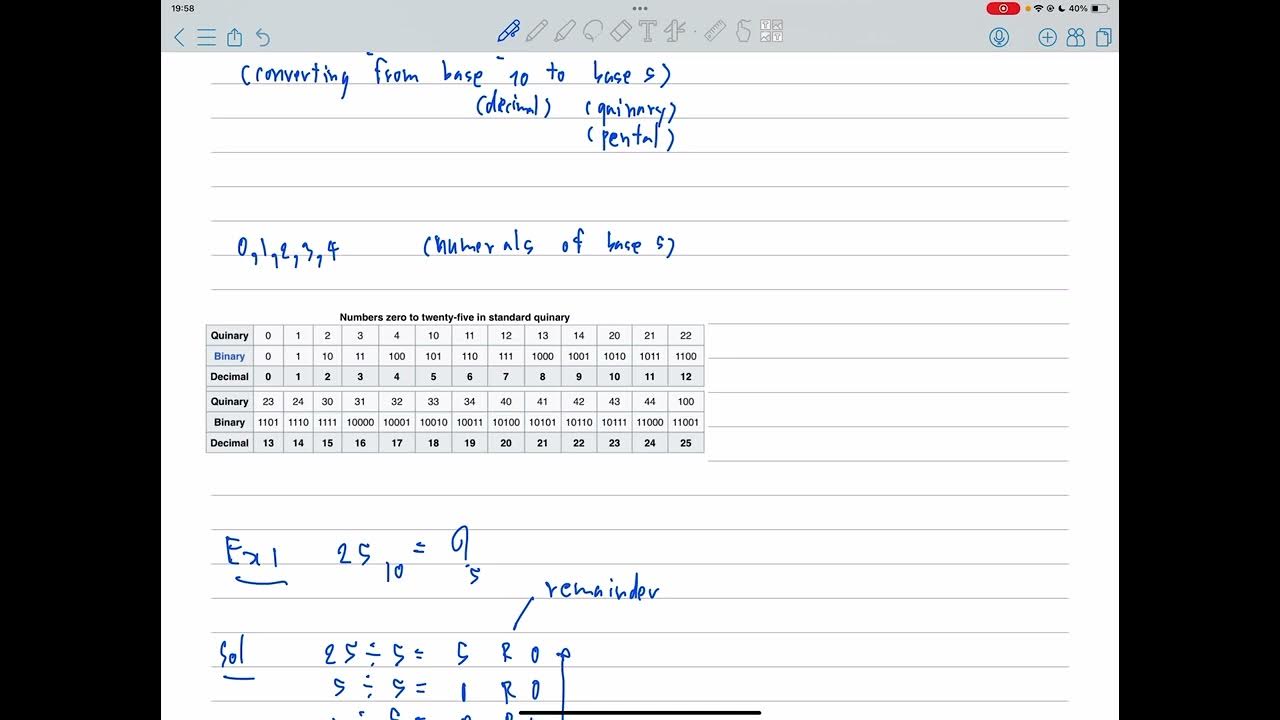 19:58
40%
(converting from base 10 to base 5)
(decimal) (quinary)
(pental)
0,1,2,3,4 (numerals of base 5)
Numbers zero to twenty-five in standard quinary
Quinary 0 1 2 3 4 10 11 12 13 14 20 21 22
Binary 0 1 10 11 100 101 110 111 1000 1001 1010 1011 1100
Decimal 0 1 2 3 4 5 6 7 8 9 10 11 12
Quinary 23 24 30 31 32 33 34 40 41 42 43 44 100
Binary 1101 1110 1111 10000 10001 10010 10011 10100 10101 10110 10111 11000 11001
Decimal 13 14 15 16 17 18 19 20 21 22 23 24 25
Ex 1 25 10 = ? 5
remainder
Sol 25 ÷ 5 = 5 R 0
5 ÷ 5 = 1 R 0